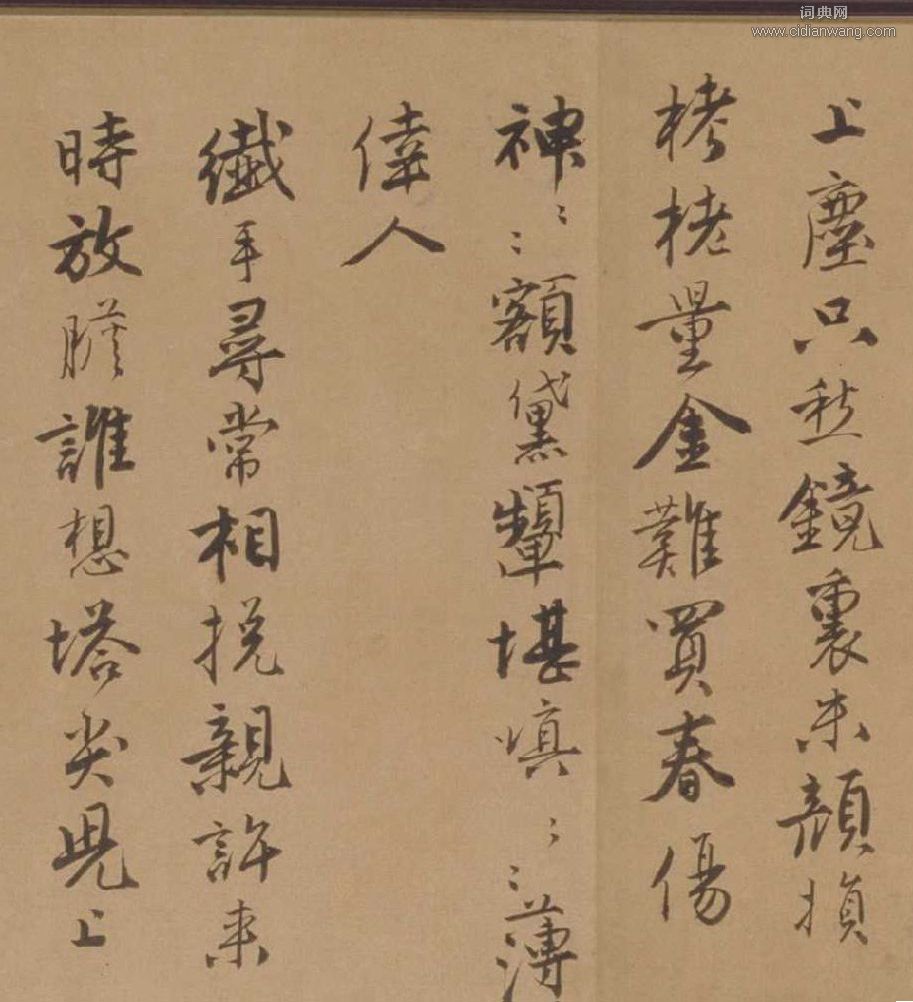 词典网
www.cidianwang.com
上塵只愁鏡裏朱顏損
栲栳量金難買春傷
神〻〻額黛顰堪嗔〻〻薄
倖人
纖手尋常相挽親許来
時放膽誰想塔尖兒上